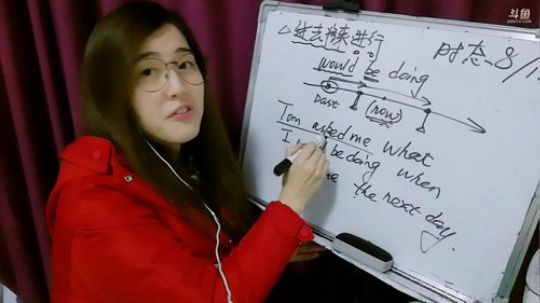 斗鱼
△过去将来进行
时态-8/1
would be doing
past
(now)
Tom asked me what
I be doing when
me the next day.